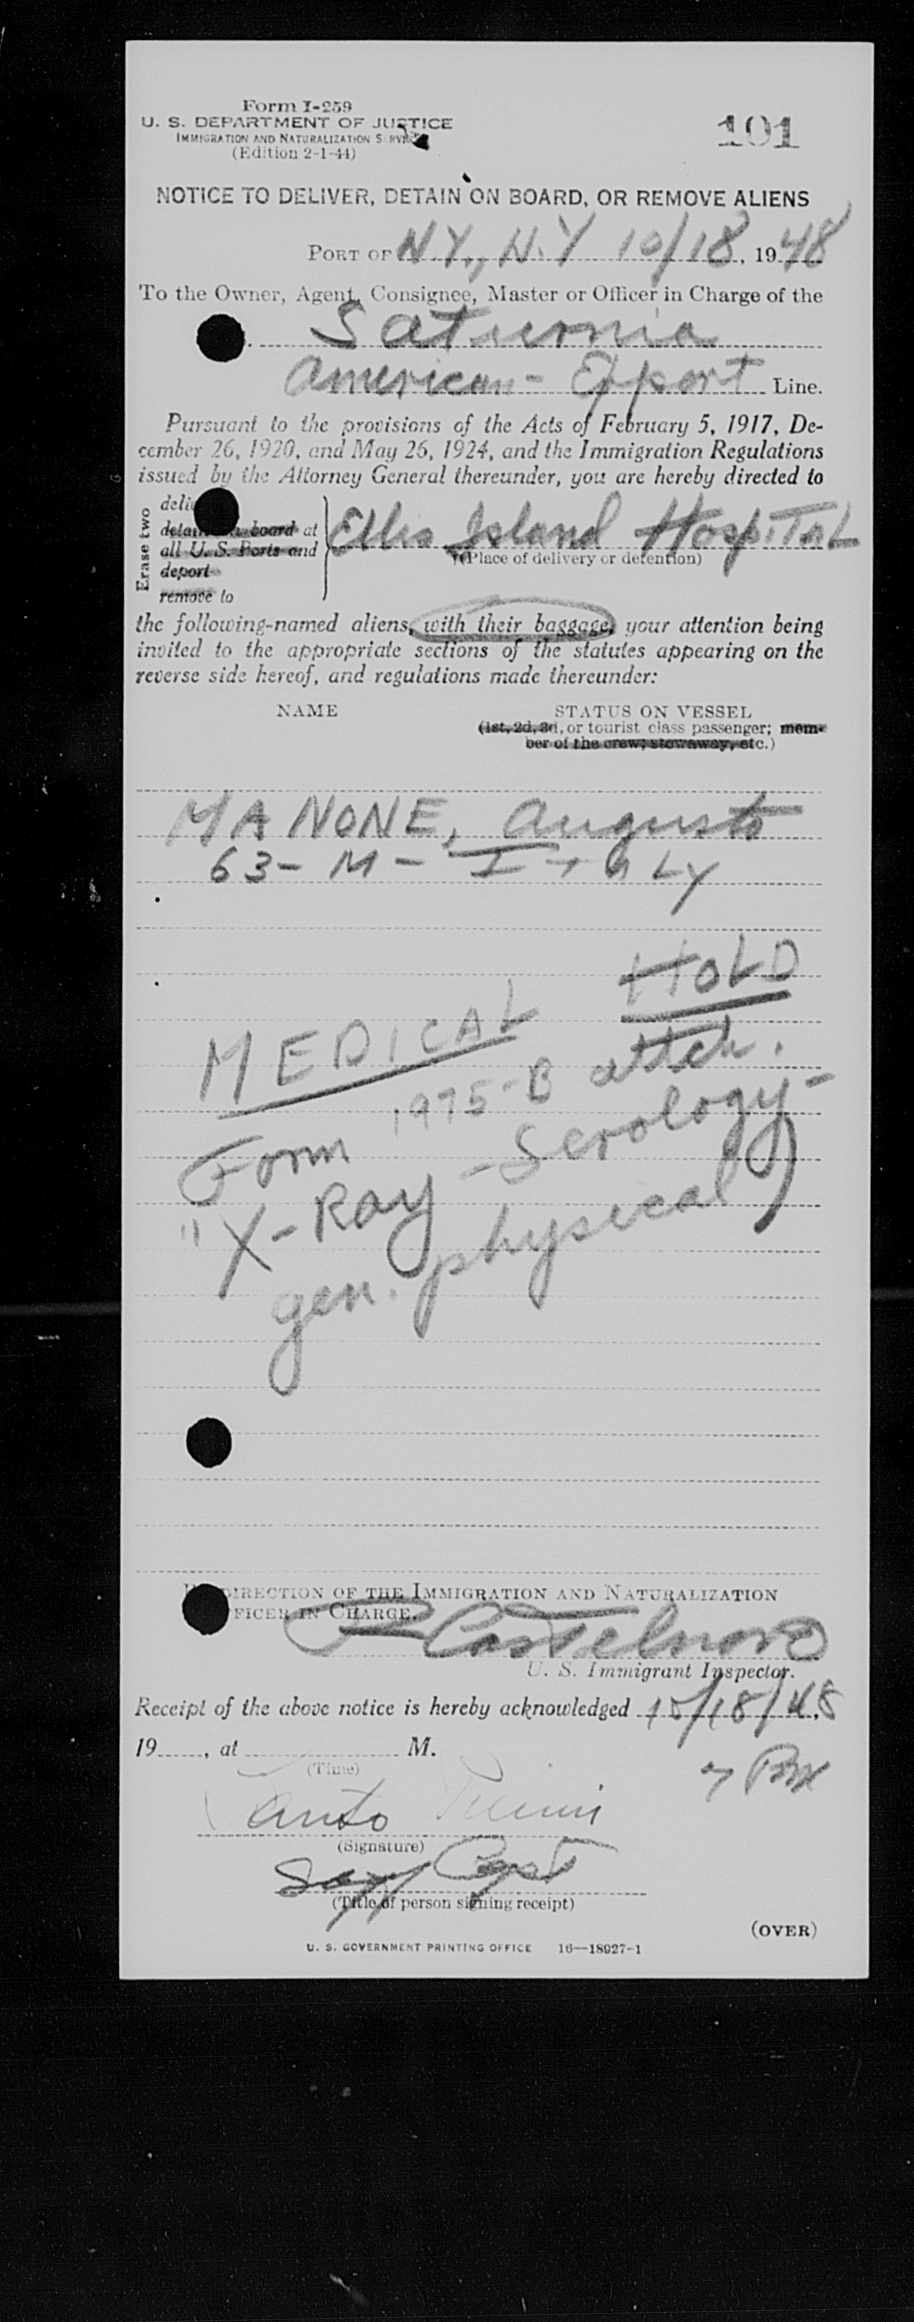 Form I-259
U. S. DEPARTMENT OF JUSTICE
IMMIGRATION AND NATURALIZATION SERVICE
(Edition 2-1-44)
101
NOTICE TO DELIVER, DETAIN ON BOARD, OR REMOVE ALIENS
PORT OF N.Y., N.Y 10/18, 1948
To the Owner, Agent, Consignee, Master or Officer in Charge of the
Saturnia
American-Export Line.
Pursuant to the provisions of the Acts of February 5, 1917, De-
cember 26, 1920, and May 26, 1924, and the Immigration Regulations
issued by the Attorney General thereunder, you are hereby directed to
Erase two
deli
detain on board at
all U. S. Ports and
deport
remove to
Ellis Island Hospital
(Place of delivery or detention)
the following-named aliens, with their baggage, your attention being
invited to the appropriate sections of the statutes appearing on the
reverse side hereof, and regulations made thereunder:
NAME STATUS ON VESSEL
(1st, 2d, 3d, or tourist class passenger; mem-
ber of the crew; stowaway, etc.)
MANONE, Augusto
63- M- ITALY
MEDICAL HOLD
Form 1975-B attch.
"X-Ray - Serology -
gen. physical)
DIRECTION OF THE IMMIGRATION AND NATURALIZATION
FICER IN CHARGE.
Castelnovo
U. S. Immigrant Inspector.
Receipt of the above notice is hereby acknowledged 10/18/48,
19, at M.
(Time)
(Signature)
(Title of person signing receipt)
(OVER)
U. S. GOVERNMENT PRINTING OFFICE 16—18927-1